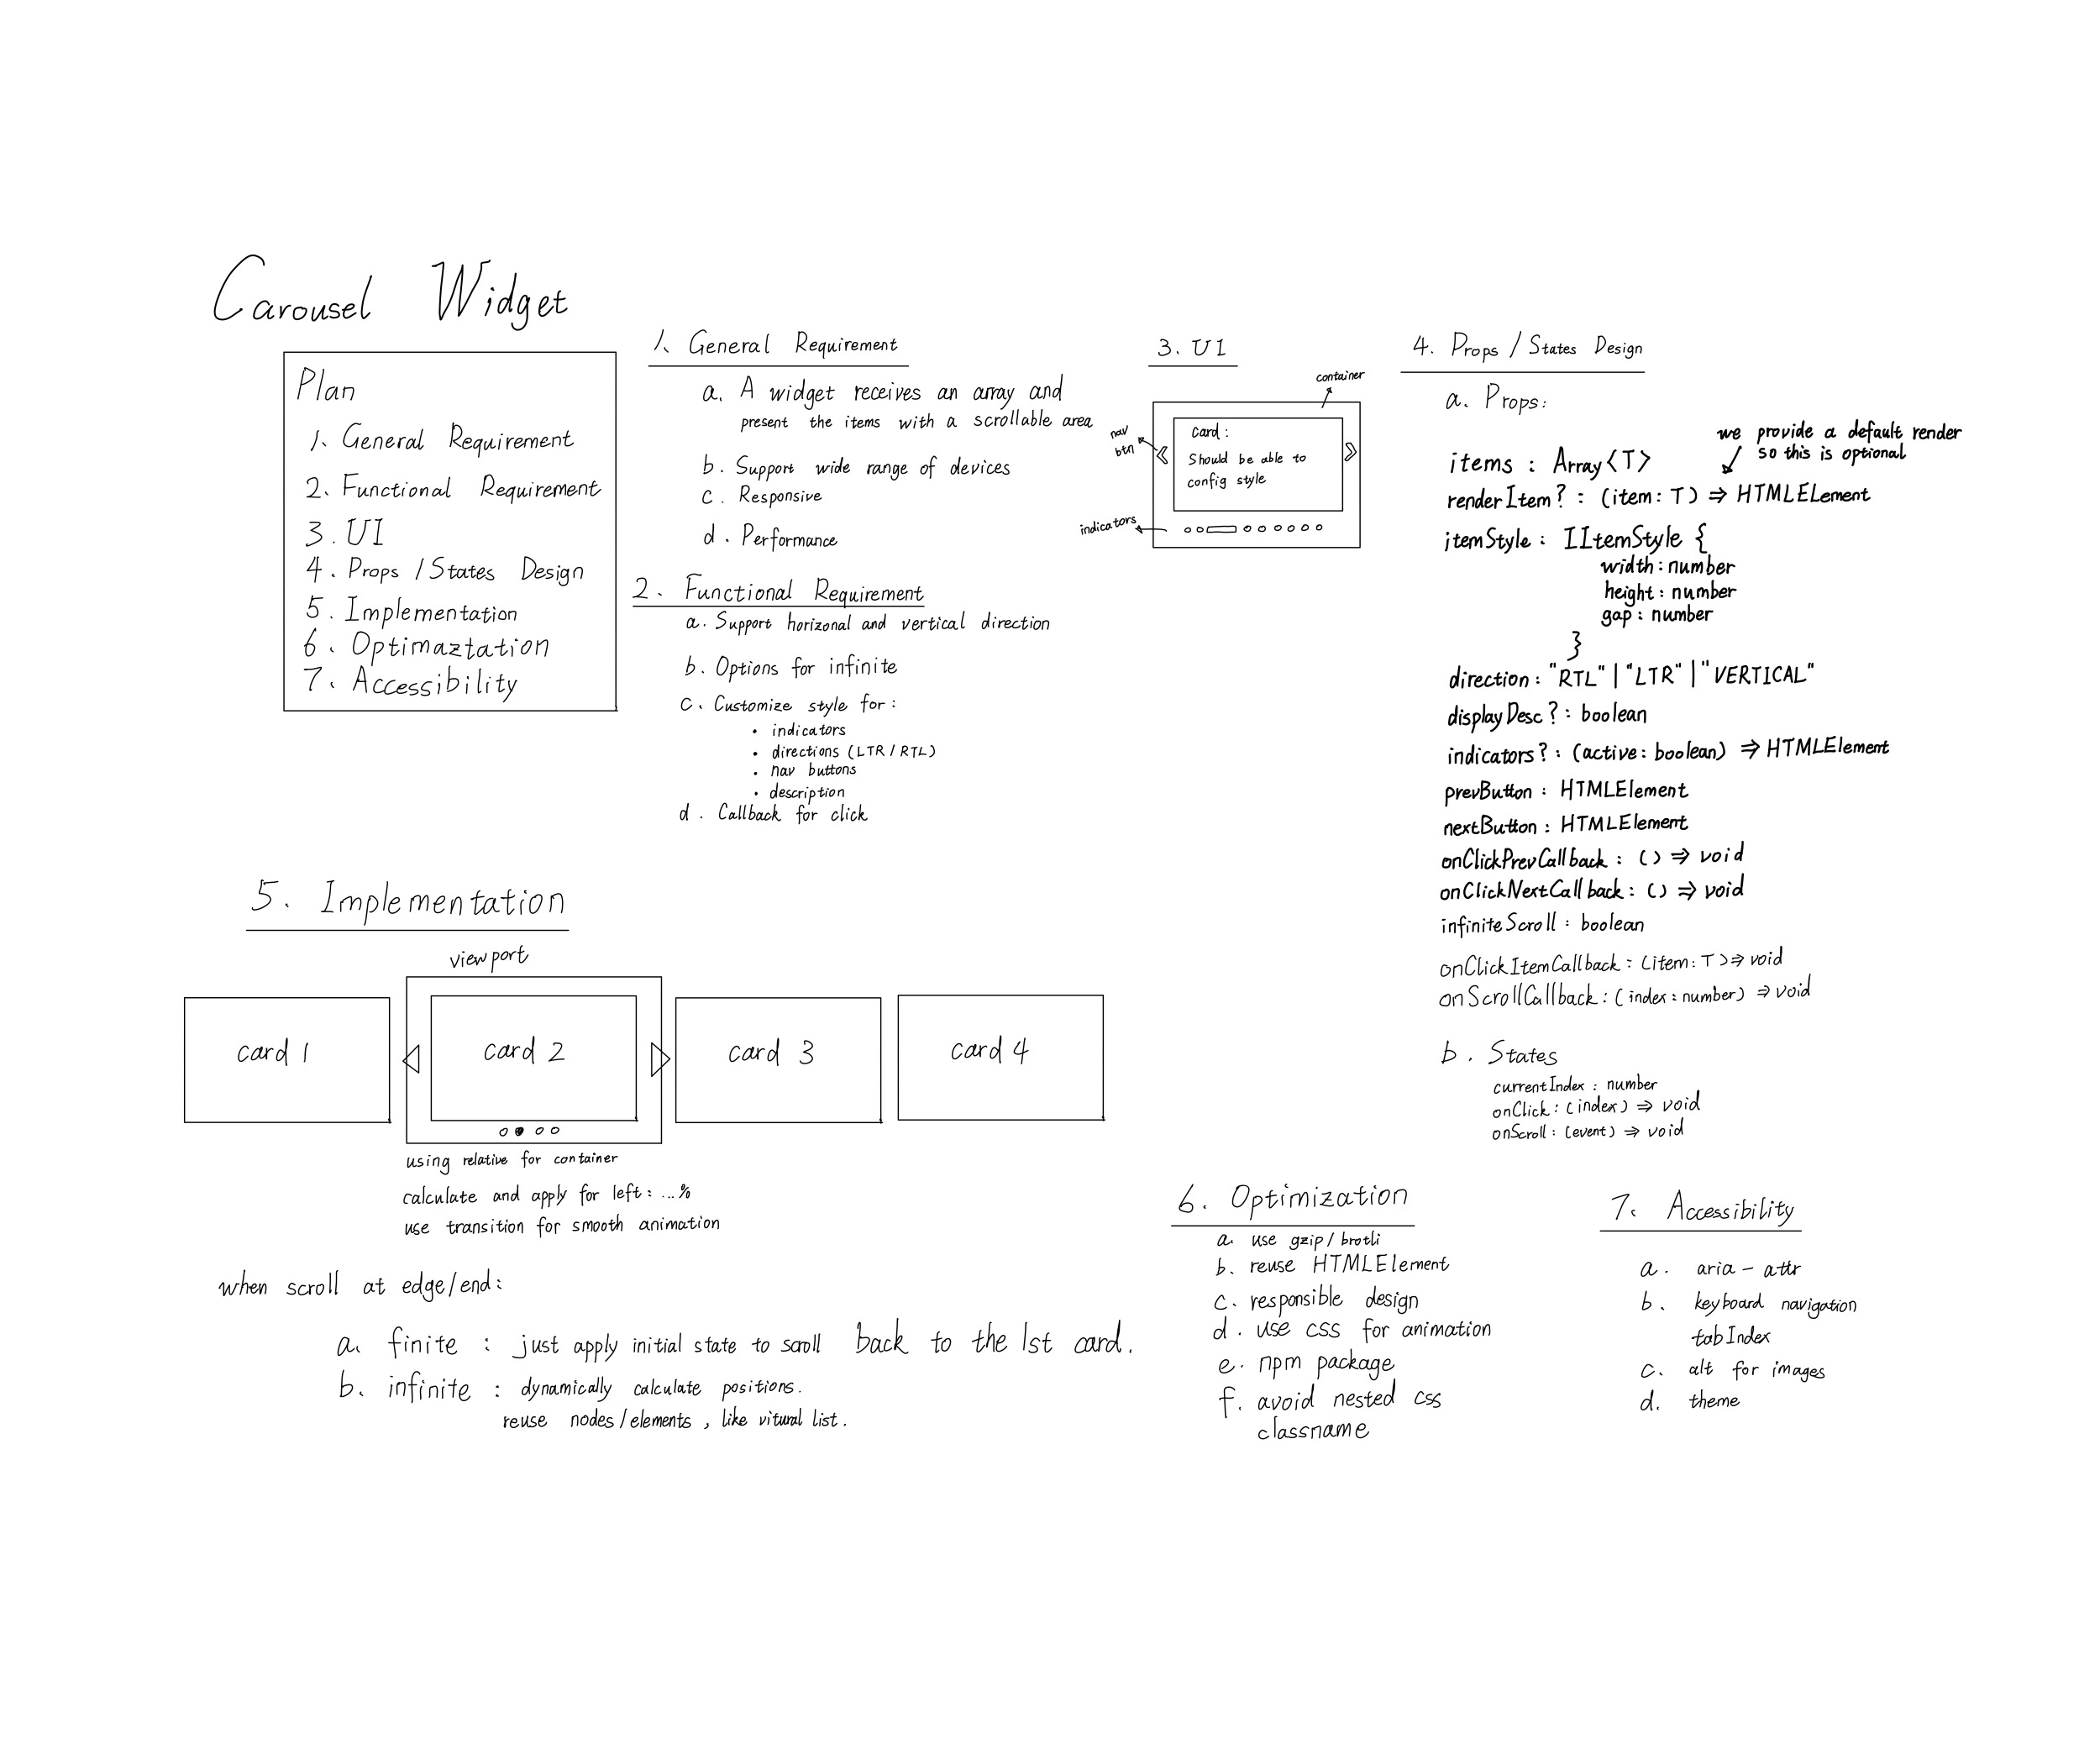 Carousel Widget
Plan
1. General Requirement
2. Functional Requirement
3. UI
4. Props / States Design
5. Implementation
6. Optimaztation
7. Accessibility
1. General Requirement
a. A widget receives an array and
present the items with a scrollable area
b. Support wide range of devices
c. Responsive
d. Performance
2. Functional Requirement
a. Support horizonal and vertical direction
b. Options for infinite
c. Customize style for:
• indicators
• directions (LTR / RTL)
• nav buttons
• description
d. Callback for click
3. UI
container
nav
btn
card:
Should be able to
config style
indicators
4. Props / States Design
a. Props:
we provide a default render
so this is optional
items : Array<T>
renderItem? : (item: T) => HTMLELement
itemStyle : IItemStyle {
width: number
height: number
gap: number
}
direction: "RTL" | "LTR" | "VERTICAL"
displayDesc? : boolean
indicators? : (active: boolean) => HTMLElement
prevButton : HTMLElement
nextButton : HTMLElement
onClickPrevCallback : () => void
onClickNextCallback : () => void
infiniteScroll : boolean
onClickItemCallback : (item: T) => void
onScrollCallback : (index: number) => void
b. States
currentIndex : number
onClick : (index) => void
onScroll : (event) => void
5. Implementation
viewport
card 1
card 2
card 3
card 4
using relative for container
calculate and apply for left: ...%
use transition for smooth animation
when scroll at edge/end:
a. finite : just apply initial state to scroll back to the 1st card.
b. infinite : dynamically calculate positions.
reuse nodes/elements, like vitural list.
6. Optimization
a. use gzip/brotli
b. reuse HTMLElement
c. responsible design
d. use css for animation
e. npm package
f. avoid nested css
classname
7. Accessibility
a. aria-attr
b. keyboard navigation
tabIndex
c. alt for images
d. theme